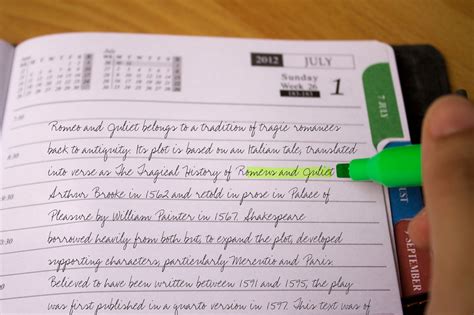 July
2012 JULY
Sunday
Week 26
1
183-183
7 JULY
7:30
Romeo and Juliet belongs to a tradition of tragic romances
8:30
back to antiquity. Its plot is based on an Italian tale, translated
into verse as The Tragical History of Romeus and Juliet
Arthur Brooke in 1562 and retold in prose in Palace of
Pleasure by William Painter in 1567. Shakespeare
borrowed heavily from both but, to expand the plot, developed
supporting characters, particularly Mercutio and Paris.
Believed to have been written between 1591 and 1595, the play
was first published in a quarto version in 1597. This text was of
SEPTEMBER